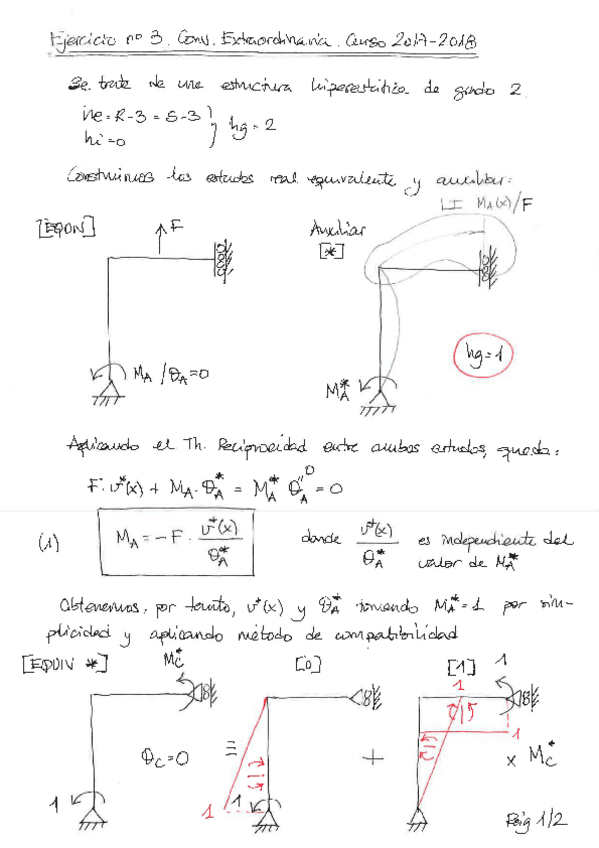 Ejercicio nº 3. Conv. Extraordinaria. Curso 2017-2018
Se trata de una estructura hiperestática de grado 2.
he = R-3 = 5-3
hi = 0
hg = 2
Construimos los estados real equivalente y auxiliar:
LI MA(x)/F
[EQUIV]
F
Auxiliar
[*]
hg=1
MA / θA=0
MA*
Aplicando el Th. Reciprocidad entre ambos estados, queda:
F·v*(x) + MA·θA* = MA* θA = 0
0
(1)
MA = -F · v*(x) / θA*
donde v*(x) / θA* es independiente del
valor de MA*
Obtenemos, por tanto, v*(x) y θA* tomando MA*=1 por sim-
plicidad y aplicando método de compatibilidad
[EQUIV *]
MC*
[0]
[1]
1
1
θC=0
≡
+
1
x MC*
1
1
1
Pág 1/2